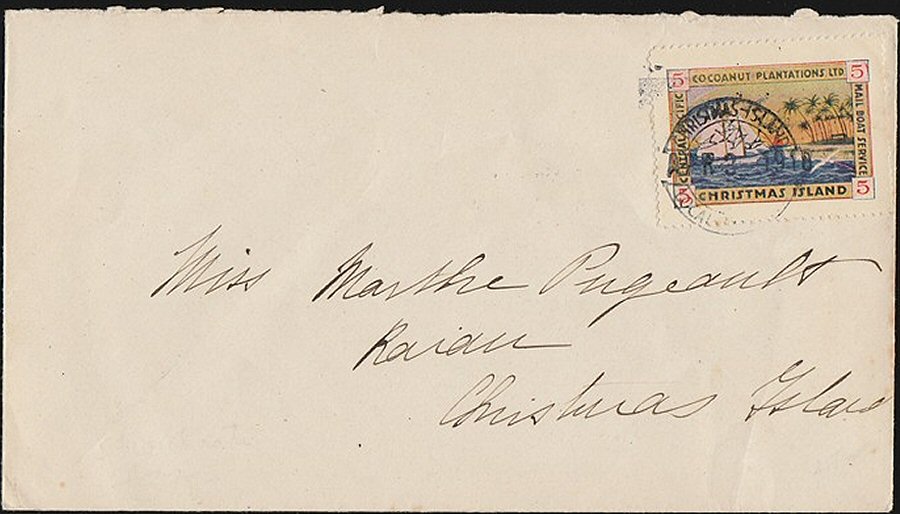 5 COCOANUT PLANTATIONS LTD 5
CENTRAL PACIFIC
MAIL BOAT SERVICE
5 CHRISTMAS ISLAND 5
CHRISTMAS ISLAND
1918
LOCAL
Miss Marthe Pugeault
Raiau
Christmas Island